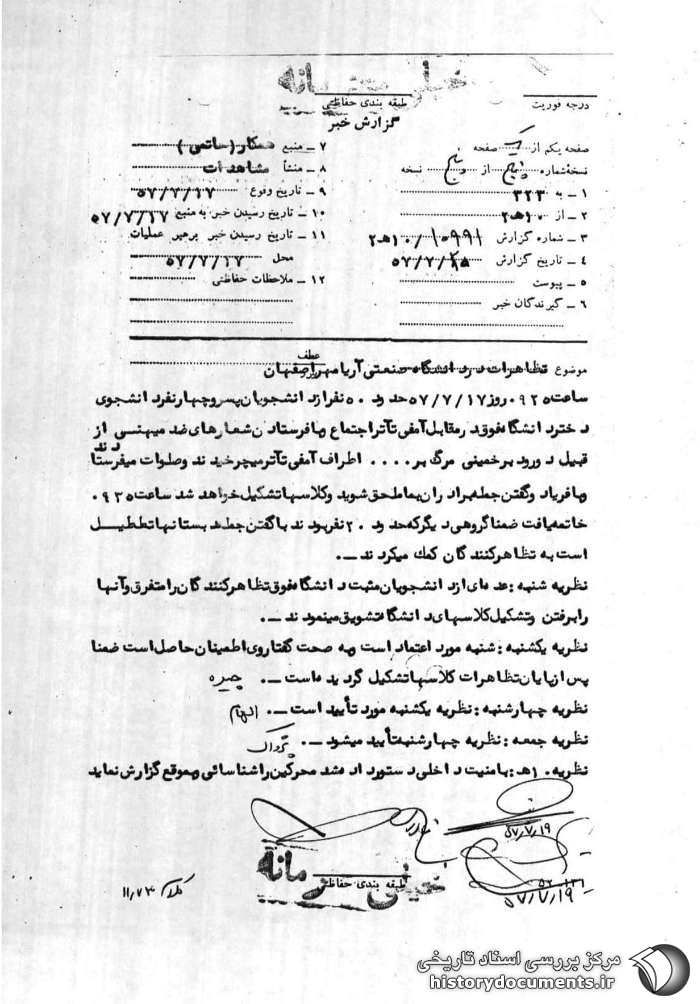 خیلی محرمانه
درجه فوریت
طبقه بندی حفاظتی
گزارش خبر
صفحه یکم از یک صفحه
نسخه شماره پنجم از پنجم نسخه
۱ ــ به ۳۲۳
۲ ــ از ۱۰هـ۲
۳ ــ شماره گزارش ۱۰۹۹۱/۱۰هـ۲
۴ ــ تاریخ گزارش ۵۷/۷/۱۸
۵ ــ پیوست
۶ ــ گیرندگان خبر
۷ ــ منبع همکار (حاتمی)
۸ ــ منشأ مشاهدات
۹ ــ تاریخ وقوع ۵۷/۷/۱۷
۱۰ ــ تاریخ رسیدن خبر به منبع ۵۷/۷/۱۷
۱۱ ــ تاریخ رسیدن خبر برهبر عملیات
محل ۵۷/۷/۱۷
۱۲ ــ ملاحظات حفاظتی
عطف
موضوع تظاهرات در دانشگاه صنعتی آریامهر اصفهان
ساعت ۰۹۲۵ روز ۵۷/۷/۱۷ حدود ۵۰ نفر از دانشجویان پسر و چهار نفر دانشجوی
دختر دانشگاه فوق در مقابل آمفی تآتر اجتماع و با فرستادن شعارهای ضد میهنی از
قبیل درود بر خمینی مرگ بر .... اطراف آمفی تآتر میچرخیدند و صلوات میفرستادند
و با فریاد و گفتن جمله برادران بما ملحق شوید و کلاسها تشکیل نخواهد شد ساعت ۰۹۳۵
خاتمه یافت ضمنا گروهی دیگر که حدود ۲۰ نفر بودند با گفتن جمله دبستانها تعطیل
است به تظاهر کنندگان کمک میکردند ــ.
نظریه شنبه : عده‌ای از دانشجویان مثبت دانشگاه فوق تظاهر کنندگان را متفرق و آنها
را برفتن و تشکیل کلاسهای دانشگاه تشویق مینمودند ــ.
نظریه یکشنبه : شنبه مورد اعتماد است و به صحت گفتار وی اطمینان حاصل است ضمنا
پس از پایان تظاهرات کلاسها تشکیل گردیده است ــ. چیره
نظریه چهارشنبه : نظریه یکشنبه مورد تأیید است ــ. الهام
نظریه جمعه : نظریه چهارشنبه تأیید میشود ــ.
نظریه ۱۰هـ : بامنیت داخلی دستور داده شد محرکین را شناسائی و بموقع گزارش نماید
۵۷/۷/۱۹
۵۷/۷/۱۹
خیلی محرمانه
طبقه بندی حفاظتی
مرکز بررسی اسناد تاریخی
historydocuments.ir